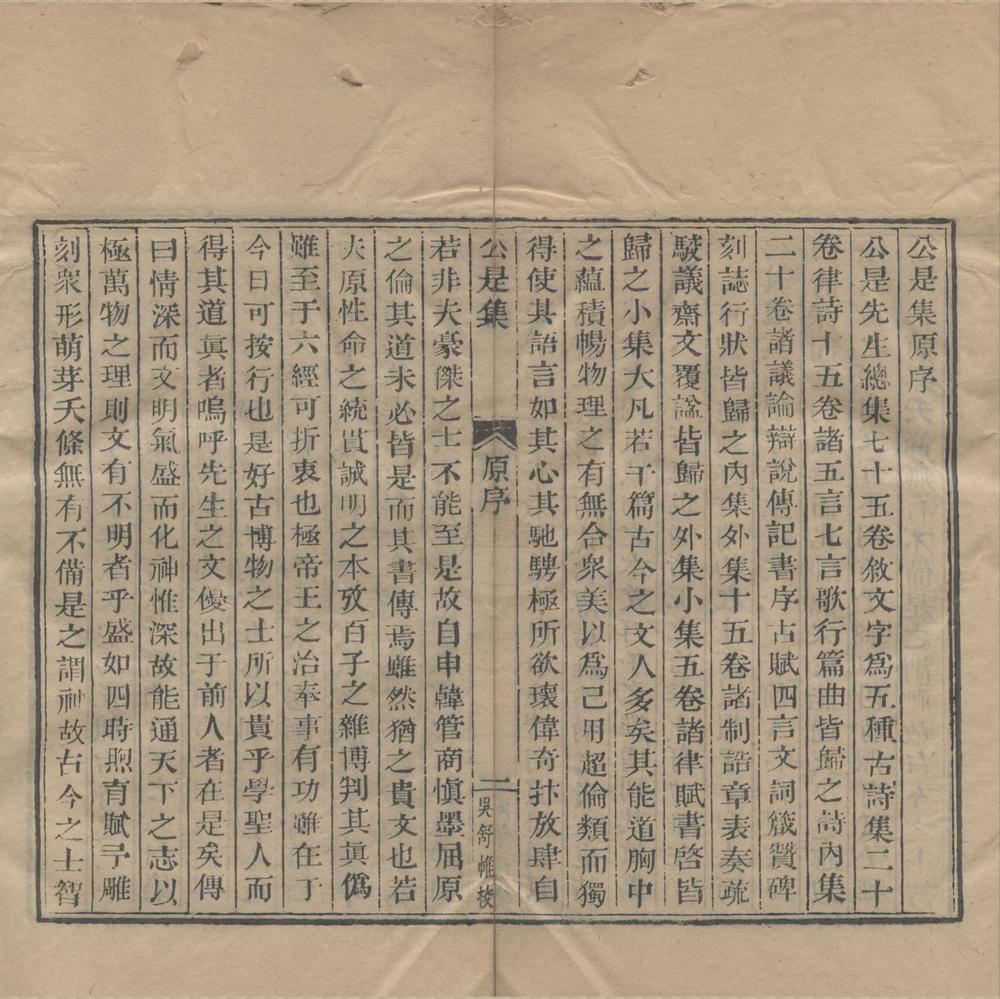 公是集原序
公是先生總集七十五卷敘文字爲五種古詩集二十
卷律詩十五卷諸五言七言歌行篇曲皆歸之詩內集
二十卷諸議論辯說傳記書序古賦四言文詞箴贊碑
刻誌行狀皆歸之內集外集十五卷諸制誥章表奏疏
駮議齋文覆諡皆歸之外集小集五卷諸律賦書啓皆
歸之小集大凡若干篇古今之文人多矣其能道胸中
之蘊積暢物理之有無合衆美以爲己用超倫類而獨
得使其語言如其心其馳騁極所欲瓌偉奇抃放肆自
公是集 原序 一 吳舒帷挍
若非夫豪傑之士不能至是故自申韓管商愼墨屈原
之倫其道未必皆是而其書傳焉雖然猶之貴文也若
夫原性命之統貫誠明之本攷百子之雜博判其眞僞
雖至于六經可折衷也極帝王之治奉事有功雖在于
今日可按行也是好古博物之士所以貴乎學聖人而
得其道眞者嗚呼先生之文優出于前人者在是矣傳
曰情深而文明氣盛而化神惟深故能通天下之志以
極萬物之理則文有不明者乎盛如四時煦育賦予雕
刻衆形萌芽夭條無有不備是之謂神故古今之士智